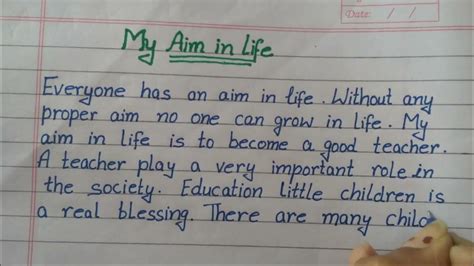 Date:
My Aim in Life
Everyone has an aim in life. Without any
proper aim no one can grow in life. My
aim in life is to become a good teacher.
A teacher play a very important role in
the society. Education little children is
a real blessing. There are many chilc